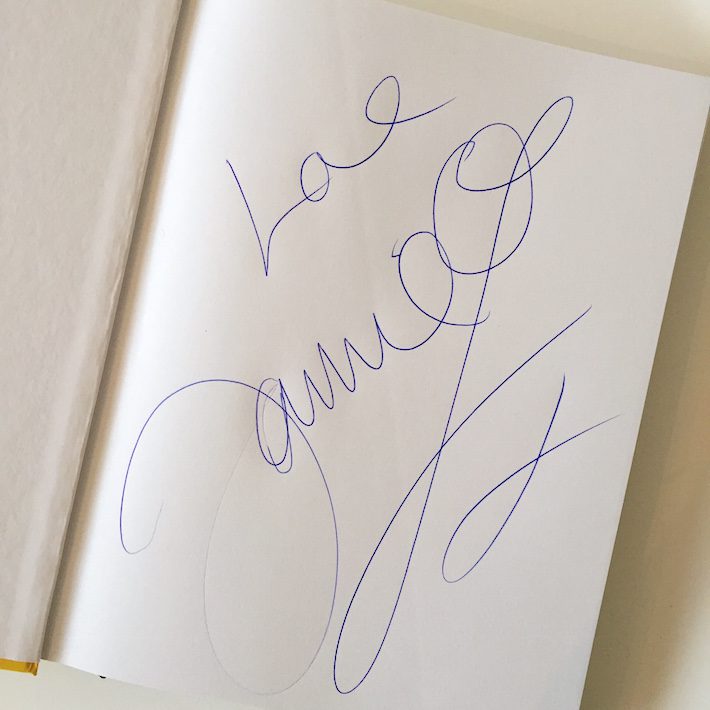 Love
Jamie O x